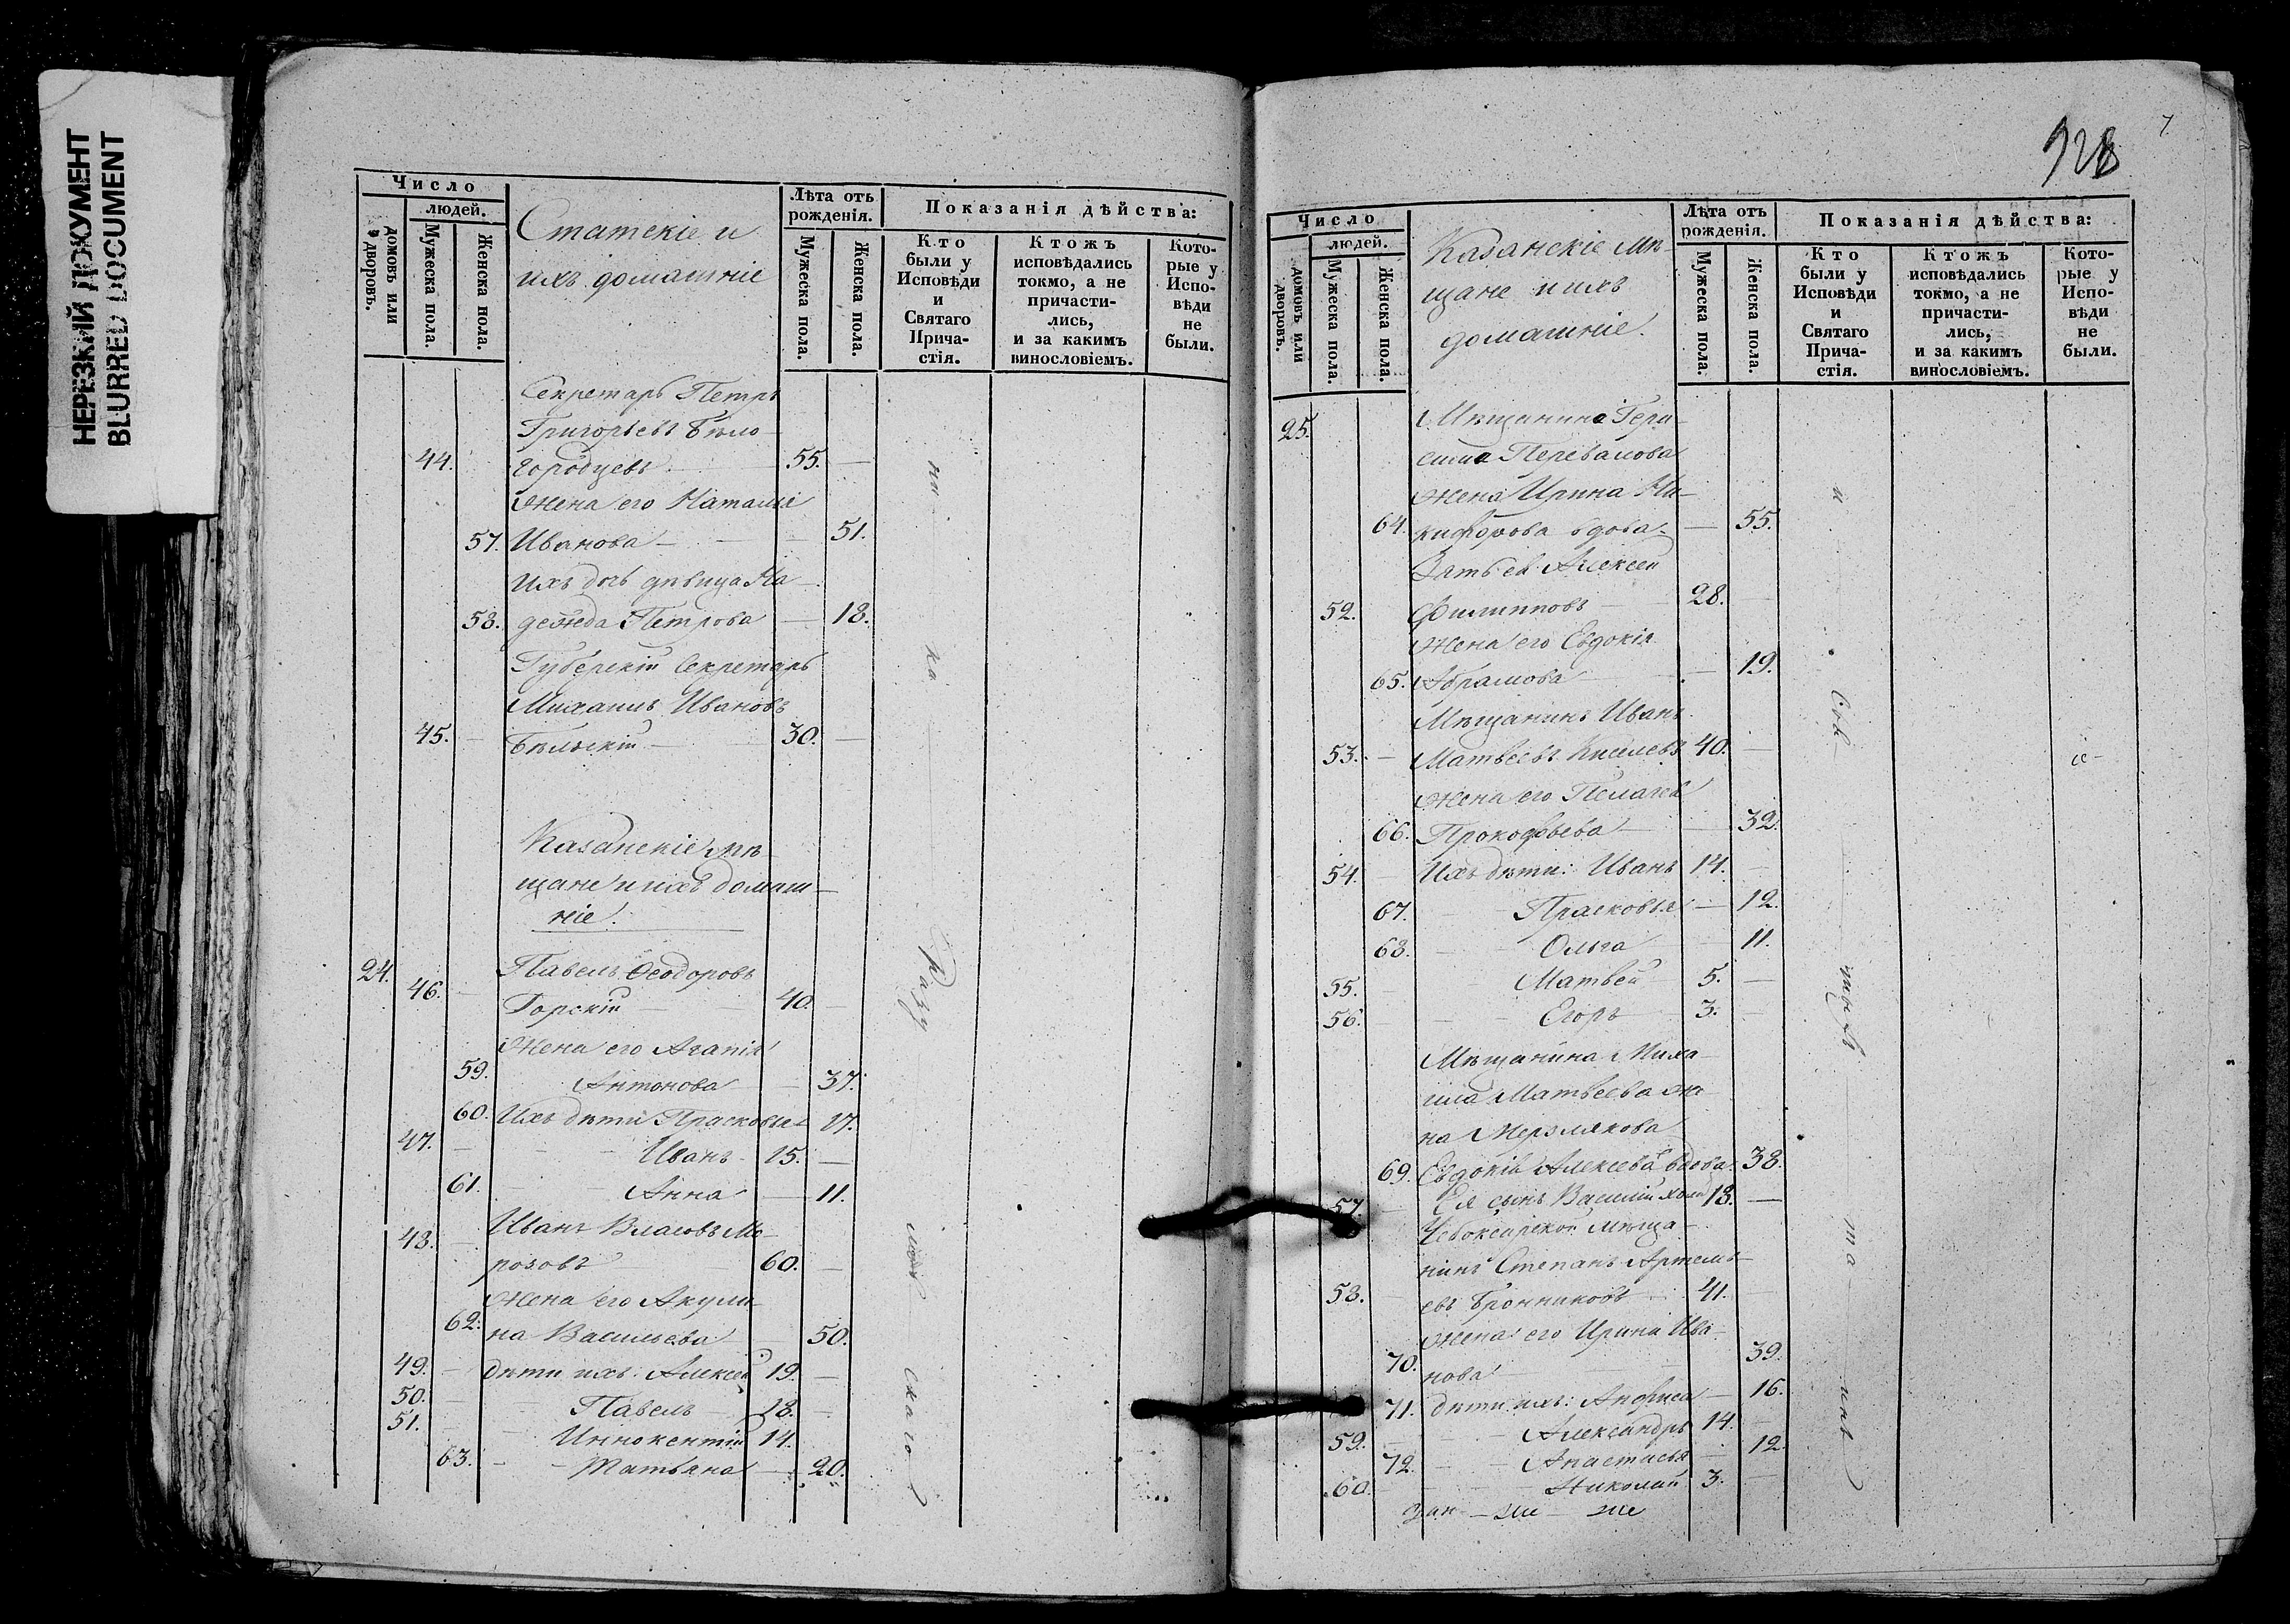 НЕРЕЗКИЙ ДОКУМЕНТ
BLURRED DOCUMENT
Число
людей.
домовъ или дворовъ.
Мужеска пола.
Женска пола.
Статскіе и
ихъ домашніе
Лѣта отъ рожденія.
Мужеска пола.
Женска пола.
Показанія дѣйства:
Кто были у Исповѣди и Святаго Прича-стія.
Ктожъ исповѣдались токмо, а не причасти-лись, и за какимъ винословіемъ.
Кото-рые у Испо-вѣди не были.
Секретарь Петръ
Григорьевъ Бѣло-
44. городцевъ 55.
Жена его Наталія
57. Иванова 51.
Ихъ дочь дѣвица На-
58. дежда Петрова 18.
Губерскій Секретарь
Михаилъ Ивановъ
45. Бѣльскій 30.
Казанскіе мѣ-
щане и ихъ домаш-
ніе.
24. Павелъ Ѳеодоровъ
46. Горскій 40.
Жена его Агапія
59. Антонова 37.
60. Ихъ дѣти Прасковья 17.
47. Иванъ 15.
61. Анна 11.
48. Иванъ Власовъ Мо-
розовъ 60.
Жена его Акули-
62. на Васильева 50.
49. дѣти ихъ: Алексей 19.
50. Павелъ 18.
51. Иннокентій 14.
63. Татьяна 20.
928
7
Число
людей.
домовъ или дворовъ.
Мужеска пола.
Женска пола.
Казанскіе мѣ-
щане и ихъ
домашніе.
Лѣта отъ рожденія.
Мужеска пола.
Женска пола.
Показанія дѣйства:
Кто были у Исповѣди и Святаго Прича-стія.
Ктожъ исповѣдались токмо, а не причасти-лись, и за какимъ винословіемъ.
Кото-рые у Испо-вѣди не были.
25. Мѣщанина Гера-
сима Перевалова
жена Ирина Ни-
64. кифорова вдова 55.
Зять ея Алексей
52. Филипповъ 28.
Жена его Евдокія
65. Абрамова 19.
Мѣщанинъ Иванъ
53. Матвеевъ Киселевъ 40.
Жена его Пелагея
66. Прокофьева 32.
54. Ихъ дѣти: Иванъ 14.
67. Прасковья 12.
68. Ольга 11.
55. Матвей 5.
56. Егоръ 3.
Мѣщанина Миха-
ила Матвеева же-
на Мерзлякова
69. Евдокія Алексева вдова 38.
57. Ея сынъ Василій 18.
Чебоксарской мѣща-
нинъ Степанъ Артемь-
58. евъ Бронниковъ 41.
Жена его Ирина Ива-
70. нова 39.
71. дѣти ихъ: Анфиса 16.
59. Александръ 14.
72. Анастасья 12.
60. Николай 3.